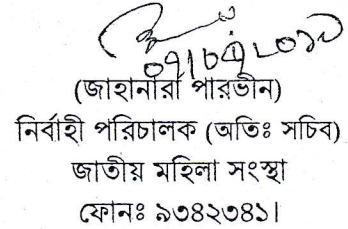 (জাহানারা পারভীন)
নির্বাহী পরিচালক (অতিঃ সচিব)
জাতীয় মহিলা সংস্থা
ফোনঃ ৯৩৪২৩৪১।